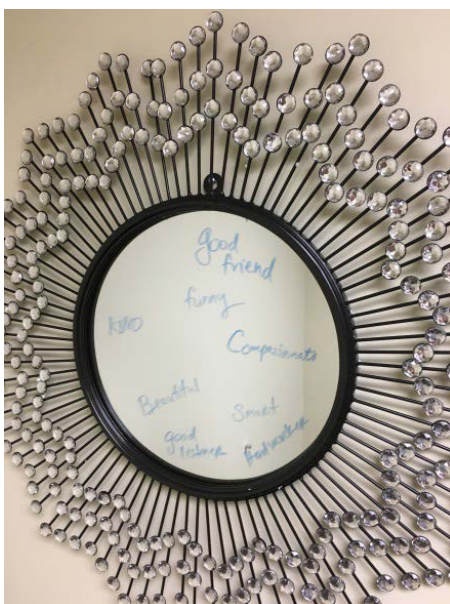 good
friend
funny
KIND
Compassionate
Beautiful
Smart
good
listener